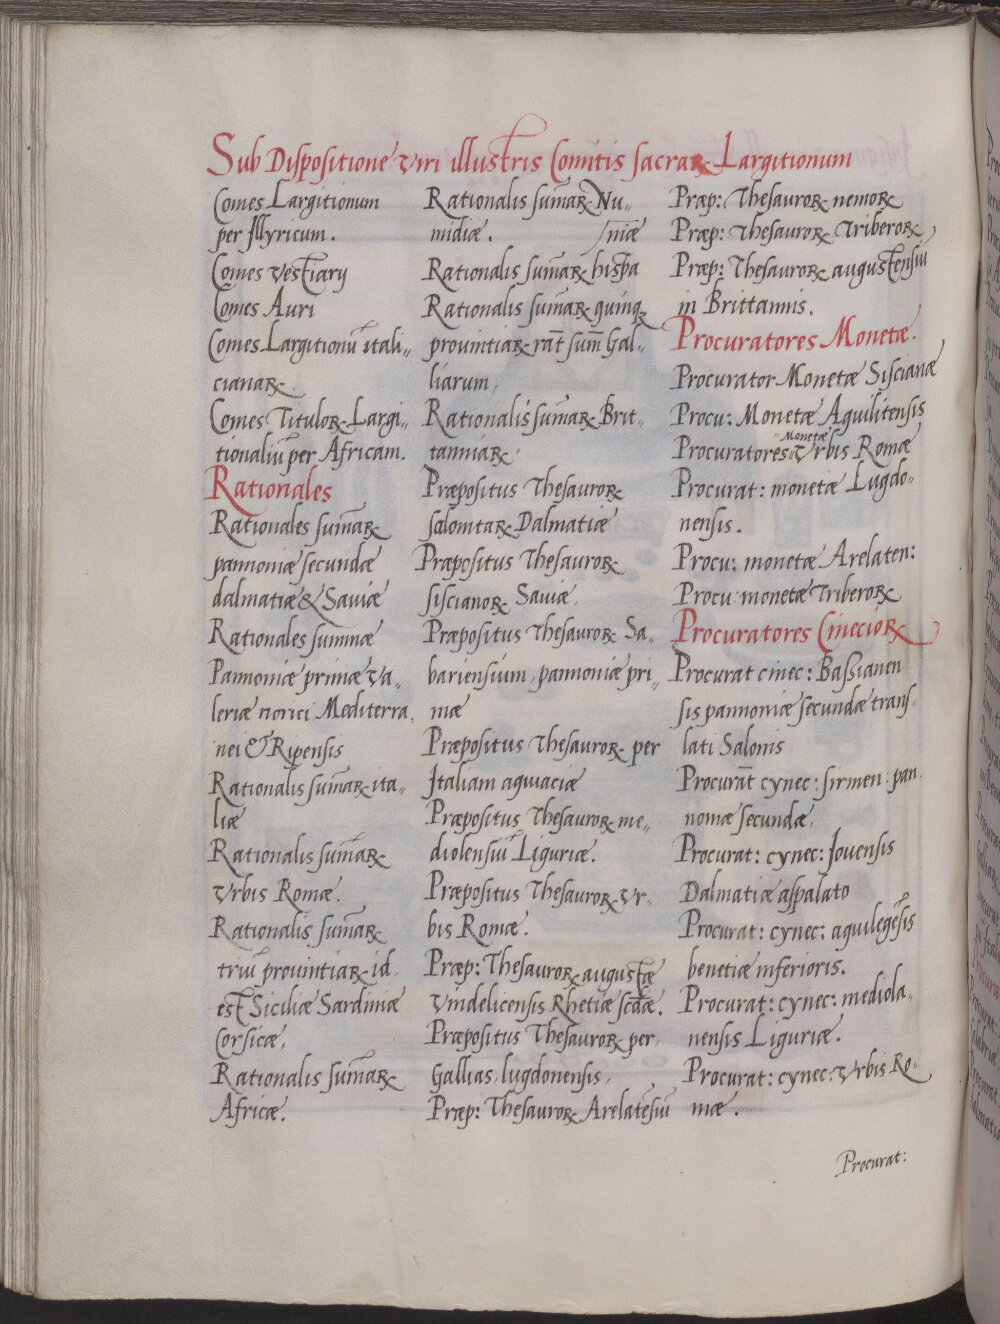 Sub Dispositione Viri illustris Comitis sacraꝝ Largitionum
Comes Largitionum
per Jllyricum.
Comes vestiarij
Comes Auri
Comes Largitionũ itali„
cianaꝝ.
Comes Tituloꝝ Largi„
tionaliũ per Africam.
Rationales
Rationales sum̃aꝝ
pannoniæ secundæ
dalmatiæ & Saviæ
Rationales summæ
Pannoniæ primæ va„
leriæ norici Mediterra„
nei & Ripensis
Rationalis sum̃aꝝ ita„
liæ
Rationalis sum̃aꝝ
Vrbis Romæ.
Rationalis sum̃aꝝ
triũ prouintiaꝝ id
est Siciliæ Sardiniæ
Corsicæ,
Rationalis sum̃aꝝ
Africæ.
Rationalis sum̃aꝝ Nu„
midiæ. /niæ
Rationalis sum̃aꝝ hispa
Rationalis sum̃aꝝ quinqꝫ
prouintiaꝝ rãt sum̃ Gal„
liarum,
Rationalis sum̃aꝝ Brit„
tanniaꝝ
Præpositus Thesauroꝝ
salonitaꝝ Dalmatiæ
Præpositus Thesauroꝝ
siscianoꝝ Saviæ
Præpositus Thesauroꝝ Sa„
bariensium, pannoniæ pri„
mæ
Præpositus Thesauroꝝ per
Jtaliam aquiaciæ
Præpositus Thesauroꝝ me„
diolensiũ Liguriæ.
Præpositus Thesauroꝝ Vr„
bis Romæ.
Præp: Thesauroꝝ augustæ
Vndelicensis Rhetiæ scdæ.
Præpositus Thesauroꝝ per,
Gallias, lugdonensis,
Præp: Thesauroꝝ Arelatẽsiũ
Præp: Thesauroꝝ nemoꝝ
Præp: Thesauroꝝ Triberoꝝ,
Præp: Thesauroꝝ augustẽsiũ
in Brittannis.
Procuratores Monetæ.
Procurator Monetæ Siscianæ
Procu: Monetæ Aquilitensis
Procuratores „Monetæ Vrbis Romæ
Procurat: monetæ Lugdo„
nensis.
Procu: monetæ Arelaten:
Procu: monetæ Triberoꝝ
Procuratores Cinecioꝝ
Procurat cinec: Bassianen
sis pannoniæ secundæ trans„
lati Salonis
Procurãt cynec: sirmen: pan„
nomæ secundæ,
Procurat: cynec: Jouensis
Dalmatiæ aspalato
Procurat: cynec: aquilegẽsis
benetiæ inferioris.
Procurat: cynec: mediola„
nensis Liguriæ.
Procurat: cynec: Vrbis Ro„
mæ.
Procurat: